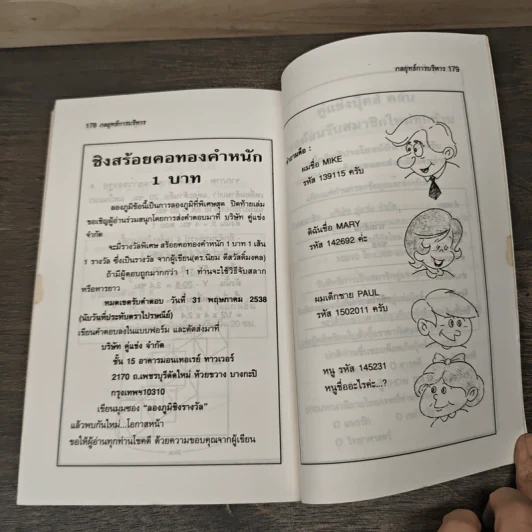 178 กลยุทธ์การบริหาร
ชิงสร้อยคอทองคำหนัก
1 บาท
ลองภูมิชื่อนี้เป็นการลองภูมิที่พิเศษสุด ปิดท้ายเล่ม
ขอเชิญผู้อ่านร่วมสนุกโดยการส่งคำตอบมาที่ บริษัท คู่แข่ง
จำกัด
จะมีรางวัลพิเศษ สร้อยคอทองคำหนัก 1 บาท 1 เส้น
1 รางวัล ซึ่งเป็นรางวัล จากผู้เขียน(ดร.นิยม ดีสวัสดิ์มงคล)
ถ้ามีผู้ตอบถูกมากกว่า 1 ท่านจะใช้วิธีจับสลาก
หรือหารยาว
หมดเขตรับคำตอบ วันที่ 31 พฤษภาคม 2538
(นับวันที่ประทับตราไปรษณีย์)
เขียนคำตอบลงในแบบฟอร์ม และตัดส่งมาที่
บริษัท คู่แข่ง จำกัด
ชั้น 15 อาคารมอนเทอเรย์ ทาวเวอร์
2170 ถ.เพชรบุรีตัดใหม่ ห้วยขวาง บางกะปิ
กรุงเทพฯ10310
เขียนมุมซอง "ลองภูมิชิงรางวัล"
แล้วพบกันใหม่...โอกาสหน้า
ขอให้ผู้อ่านทุกท่านโชคดี ด้วยความขอบคุณจากผู้เขียน
กลยุทธ์การบริหาร 179
คำถามคือ :
ผมชื่อ MIKE
รหัส 139115 ครับ
ดิฉันชื่อ MARY
รหัส 142692 ค่ะ
ผมเด็กชาย PAUL
รหัส 1502011 ครับ
หนู รหัส 145231
หนูชื่ออะไรค่ะ...?